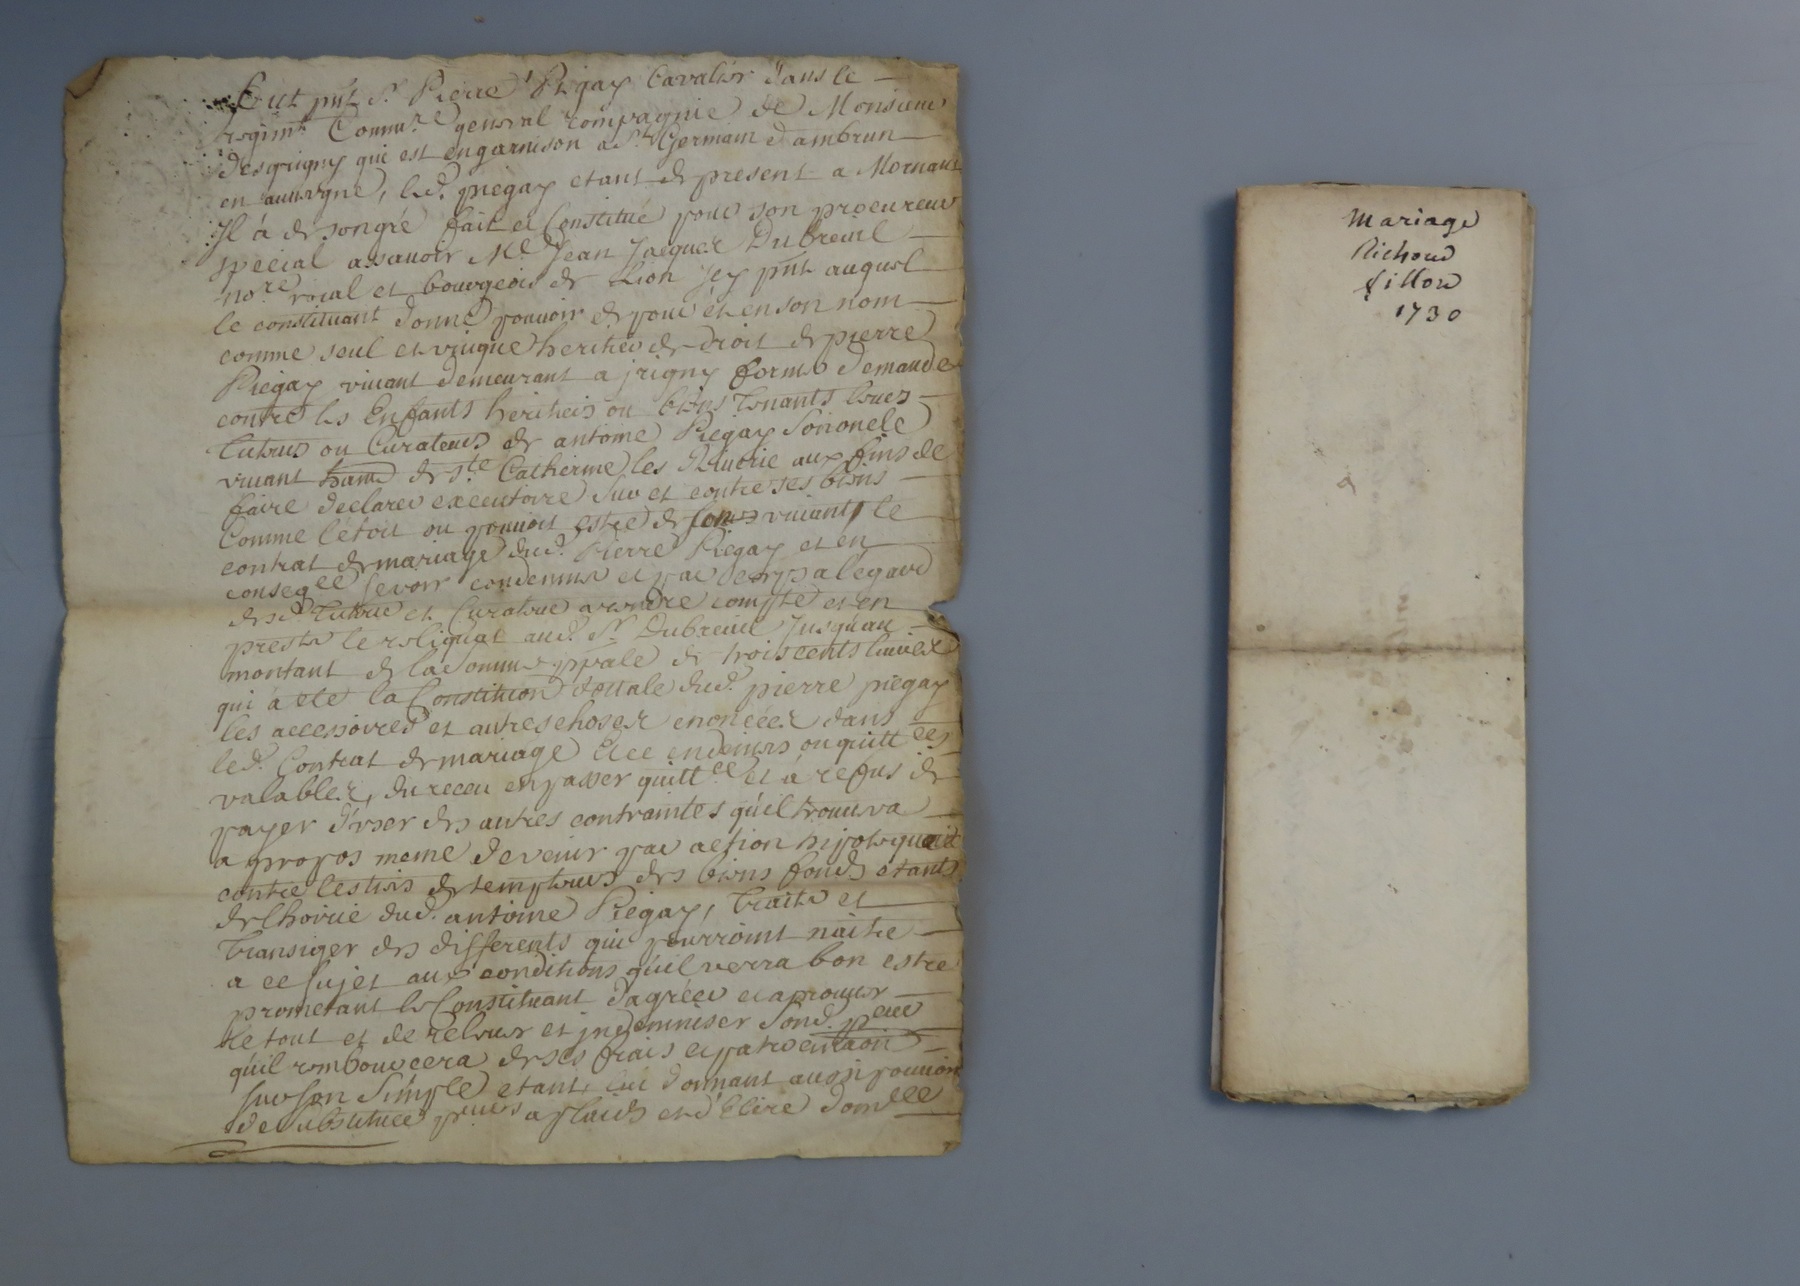 Fut pnt Sr. Pierre Piegay Cavalier dans le
regimt Commre general compagnie de Monsieur
desgrigny qui est engarnison a St Germain dambrun
en auvergne, led. piegay etant de present a Mornant
Il á de songré fait et Constitué pour son procureur
special asavoir Me Jean Jacques Dubreuil
nore roial et bourgeois de Lion Jcy pnt auquel
le constituant donne pouvoir de pour et en son nom
comme seul et unique heritier de droit de pierre
Piegay vivant demeurant a jrigny former demande
contre les Enfants heritiers ou biens tenants leurs
tuteurs ou Curateurs de antoine Piegay
vivant de Ste Catherine les aux fins de
faire declarer executoire sur et contre ses biens
Comme létoit ou pouvoit estre de vivant le
contrat de mariage dud. Pierre Piegay et en
conseqce se voir condemner et par corps a legard
desd. Tuteurs et Curateurs a rendre compte et en
prester le reliquat aud. Sr Dubreuil Jusquau
montant de la somme ppale de trois cents livres
qui á eté la Constitution dottale dud. pierre piegay
les accessoires et autres choses enoncées dans
led. Contrat de mariage Et ce endeniers ou quittces
valables, du receu en passer quittce et á refus de
payer d'user des autres contraintes quil trouvera
a propos meme de venir par action hipotequaire
contre les tiers detempteurs des biens fonds étants
de lhoirie dud. antoine Piegay, traiter et
transiger des differents qui pourroint naitre
a ce sujet aux conditions quil verra bon estre
prometant le Constituant d'agréer et aprouver
le tout et de relever et jndemniser Sond. preur
quil remboursera de ses frais et patrocination
sur son Simple etant, lui donnant aussi pouvoir
de substituer preurs a plaids et d'Elire domlle
Mariage
Richoud
fillon
1730